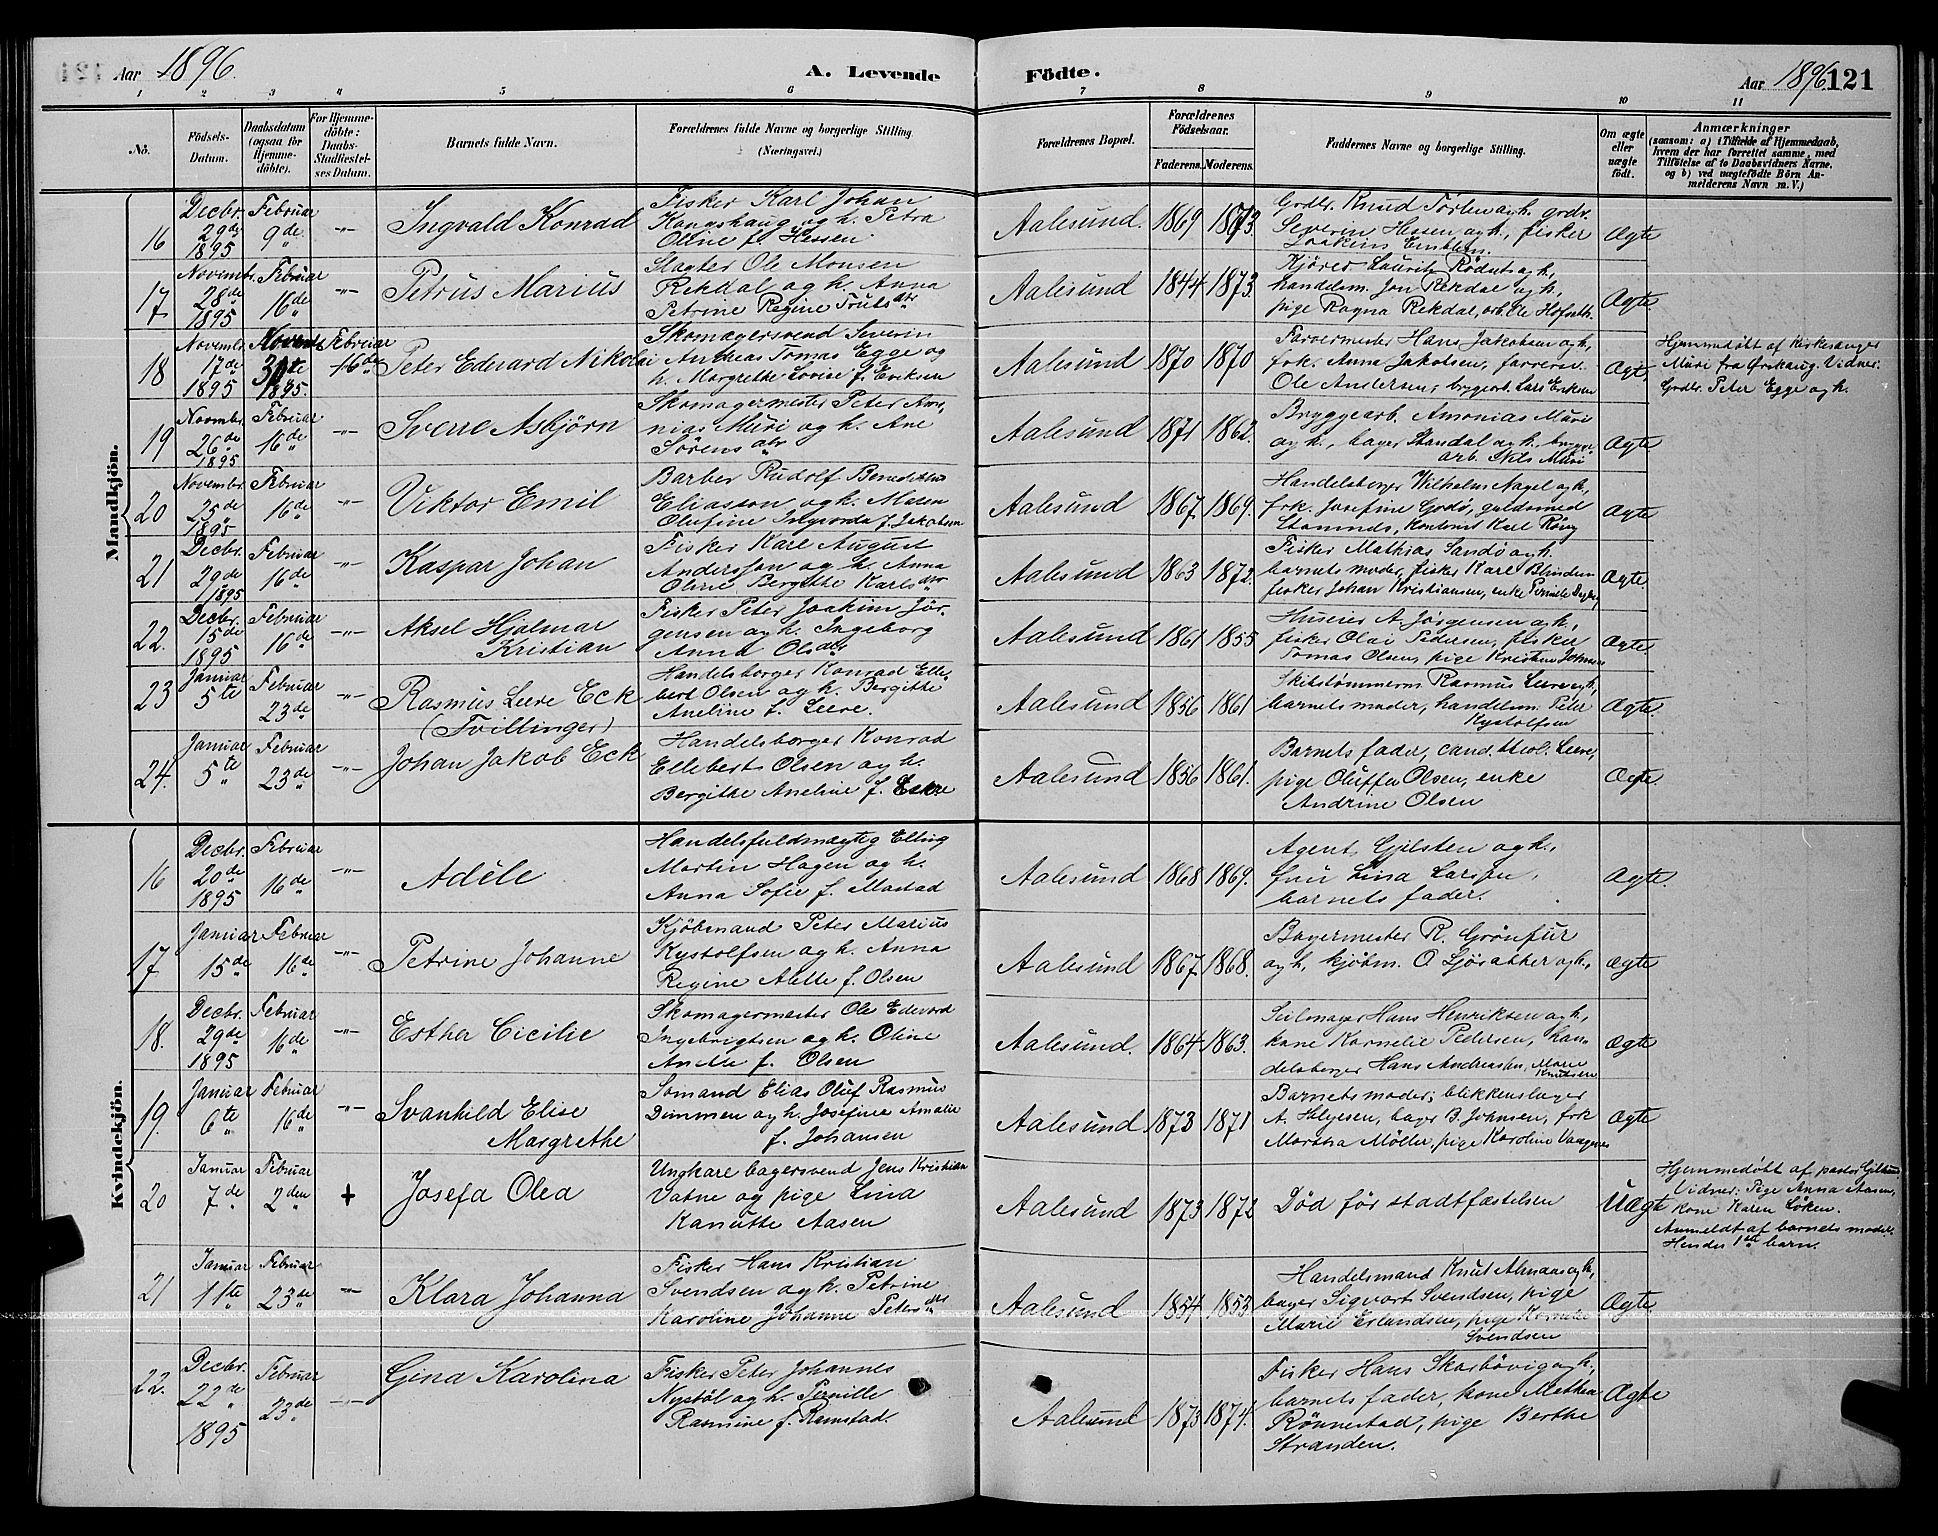 Aar 1896.
A. Levende
Födte.
Aar 1896. 121
1 2 3 4 5 6 7 8 9 10 11
No.
Födsels-Datum.
Daabsdatum (ogsaa for Hjemmedöbte).
For Hjemmedöbte: Daabs-Stadfæstelses Datum.
Barnets fulde Navn.
Forældrenes fulde Navne og borgerlige Stilling. (Næringsvei.)
Forældrenes Bopæl.
Forældrenes Födselsaar.
Faderens. Moderens.
Faddernes Navne og borgerlige Stilling.
Om ægte eller uægte födt.
Anmærkninger
(saasom: a) i Tilfælde af Hjemmedaab, hvem der har forrettet samme, med Tilföielse af to Daabsvidners Navne. og b) ved uægtefödte Börn Anmelderens Navn m. V.)
Mandkjön.
16 Decbr. 29de 1895 Februar 9de -"- Ingvald Konrad
Fisker Karl Johan
Kongshaug og h. Petra
Oline f. Hessen
Aalesund. 1869 1873.
Severin Hessen og h., fisker
Joakim Emblem.
Ægte
17 Novembr. 28de 1895 Februar 16de -"- Petrus Marius
Slagter Ole Monsen
Rekdal og h. Anna
Petrine Regine Trulsdtr
Aalesund 1844 1873.
Kjörer Laurits Rödset og h.,
handelsm. Jon Rekdal og h.,
pige Ragna Rekdal, arb. Ole Hofseth.
Ægte.
18 Novembr. 17de 1895 30te 1895. Februar 16de Peter Edvard Nikolai
Skomagersvend Severin
Andreas Tomas Egge og
h. Margrethe Lovise f. Eriksen
Aalesund 1870 1870
Farvermester Hans Jakobsen og h.,
frk. Anna Jakobsen, farversv.
Ole Andersen, bryggearb. Lars Eriksen
Ægte
Hjemmedöbt af kirkesanger
Muri fra Ørskaug. Vidner:
Gbdbr. Peter Egge og h.
19 Novmbr. 26de 1895 Februar 16de -"- Sverre Asbjörn
Skomagermester Peter Amo-
nias Muri og h. Ane
Sörensdtr
Aalesund 1871 1862.
Bryggearb. Amonias Muri
og h., bager Standal og h., brygge
arb. Nils Muri
Ægte
20 Novembr. 25de 1895 Februar 16de -"- Viktor Emil
Barber Rudolf Benediktus
Eliasson og h. Maren
Olufine Ingvarda f. Jakobsen
Aalesund 1867. 1869.
Handelsborger Wilhelm Nagel og h.,
frk. Josefine Godö, guldsmed
Stamnes, kontorist Karl Röing
Ægte
21 Decbr. 29de 1895 Februar 16de -"- Kaspar Johan
Fisker Karl August
Andersson og h. Anna
Oline Bergitte Karlsdtr
Aalesund 1863 1872.
Fisker Mathias Sandö og h.
barnets moder, fisker Karl Blindheim
fisker Johan Kristiansen, enke Pernille
Ægte.
22. Decbr. 15de 1895 Februar 16de -"- Aksel Hjalmar
Kristian
Fisker Peter Joakim Jör-
gensen og h. Ingeborg
Anna Olsdtr
Aalesund 1861 1855
Huseier A. Jörgensen og h.,
fisker Olai Pedersen, fisker
Tomas Olsen, pige Kristine Johnsen
Ægte
23 Januar 5te Februar 23de -"- Rasmus Leere Eck
(Tvillinger)
Handelsborger Konrad Elle-
bert Olsen og h. Bergitte
Aneline f. Leere.
Aalesund 1856 1861
Skibstömmerm. Rasmus Leere og h.,
barnets moder, handelsm. Peter
Rystolfsen
Ægte.
24. Januar 5te Februar 23de -"- Johan Jakob Eck
Handelsborger Konrad
Elleberts Olsen og h.
Bergitte Aneline f.
Aalesund 1856 1861.
Barnets fader, cand. theol. Leere,
pige Oluffa Olsen, enke
Andrine Olsen
Ægte
Kvindekjön.
16 Decbr. 20de 1895 Februar 16de -"- Adéle
Handelsfuldmægtig Elling
Martin Hagen og h.
Anna Sofie f. Mostad
Aalesund 1868 1869.
Agent Gjilsten og h.,
fru Lina Larsen,
barnets fader.
Ægte.
17 Januar 15de Februar 16de -"- Petrine Johanne
Kjöbmand Peter Marius
Rystolfsen og h. Anna
Regine Alette f. Olsen
Aalesund 1867. 1868.
Bagermester R. Grönfur
og h., kjöbm. O. Sjöbakker og h.,
Ægte
18. Decbr. 29de 1895 Februar 16de -"- Esther Cicilie
Skomagermester Ole Edevard
Ingebrigtsen og h. Oline
Anette f. Olsen
Aalesund. 1864 1863.
Seilmager Hans Henriksen og h.,
kone Kornelie Pedersen, han-
delsborger Hans Andreassen, Marie
Knutsen
Ægte
19. Januar 6te Februar 16de -"- Svanhild Elise
Margrethe
Sömand Elias Oluf Rasmus
Dimmen og h. Josefine Amalie
f. Johansen
Aalesund 1873 1871
Barnets moder, blikkenslager
A. Helgesen, bager B. Johnsen, frk
Martha Möller, pige Karoline Vaagnes
Ægte
20 Januar 7de Februar 2den + Josefa Olea
Ungkarl bagersvend Jens Kristian
Vatne og pige Lina
Kanutte Aasen
Aalesund 1873 1872
Död för stadfæstelsen
Uægte
Hjemmedöbt af pastor
Vidner: Pige Anna Aasen,
kone Karen Löken.
Anmeldt af barnets moder.
Hendes 1ste barn.
21 Januar 11te Februar 23de -"- Klara Johanna
Fisker Hans Kristian
Svendsen og h. Petrine
Karoline Johanne Petersdtr
Aalesund 1854 1853
Handelsmand Knut Almaas og h.,
bager Sigvart Svendsen, pige
Marie Erlandsen, pige Kornelie
Svendsen
Ægte.
22. Decbr. 22de 1895 Februar 23de -"- Gina Karolina
Fisker Peter Johannes
Nystöl og h. Pernille
Rasmine f. Ramstad.
Aalesund 1873 1874.
Fisker Hans Skarbövig og h.,
barnets fader, kone Mathea
Rönnestad, pige Berthe
Stranden.
Ægte